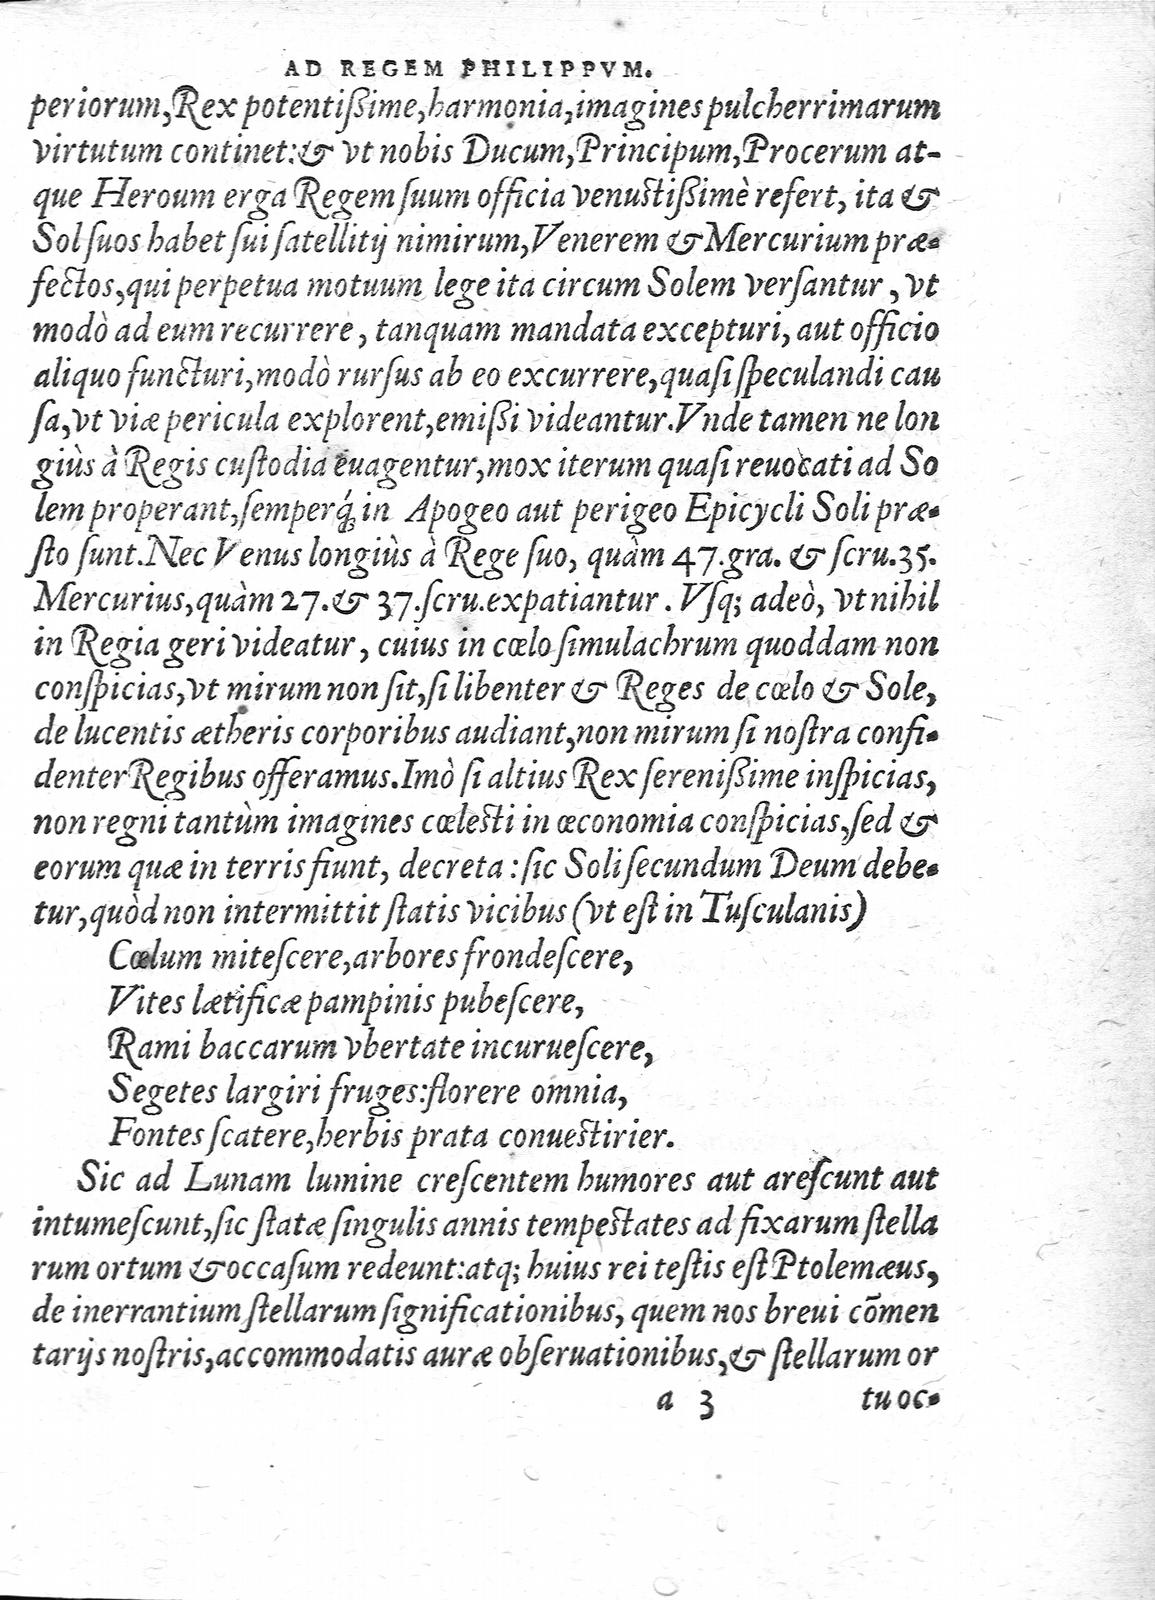 AD REGEM PHILIPPVM.
periorum, Rex potentißime, harmonia, imagines pulcherrimarum
virtutum continet: & vt nobis Ducum, Principum, Procerum at-
que Heroum erga Regem ſuum officia venuſtißimè refert, ita &
Sol ſuos habet ſui ſatellitij nimirum, Venerem & Mercurium præ-
fectos, qui perpetua motuum lege ita circum Solem verſantur, vt
modò ad eum recurrere, tanquam mandata excepturi, aut officio
aliquo functuri, modò rurſus ab eo excurrere, quaſi ſpeculandi cau
ſa, vt viæ pericula explorent, emißi videantur. Vnde tamen ne lon
giùs à Regis cuſtodia euagentur, mox iterum quaſi reuocati ad So
lem properant, ſemperq́; in Apogeo aut perigeo Epicycli Soli præ-
ſto ſunt. Nec Venus longiùs à Rege ſuo, quàm 47. gra. & ſcru. 35.
Mercurius, quàm 27. & 37. ſcru. expatiantur. Vſq; adeò, vt nihil
in Regia geri videatur, cuius in cœlo ſimulachrum quoddam non
conſpicias, vt mirum non ſit, ſi libenter & Reges de cœlo & Sole,
de lucentis ætheris corporibus audiant, non mirum ſi noſtra confi-
denter Regibus offeramus. Imò ſi altius Rex ſerenißime inſpicias,
non regni tantùm imagines cœleſti in œconomia conſpicias, ſed &
eorum quæ in terris fiunt, decreta: ſic Soli ſecundum Deum debe-
tur, quòd non intermittit ſtatis vicibus (vt eſt in Tuſculanis)
Cœlum miteſcere, arbores frondeſcere,
Vites lætificæ pampinis pubeſcere,
Rami baccarum vbertate incurueſcere,
Segetes largiri fruges: florere omnia,
Fontes ſcatere, herbis prata conueſtirier.
Sic ad Lunam lumine creſcentem humores aut areſcunt aut
intumeſcunt, ſic ſtatæ ſingulis annis tempeſtates ad fixarum ſtella
rum ortum & occaſum redeunt: atq; huius rei teſtis eſt Ptolemæus,
de inerrantium ſtellarum ſignificationibus, quem nos breui cōmen
tarijs noſtris, accommodatis auræ obſeruationibus, & ſtellarum or
a 3 tu oc-